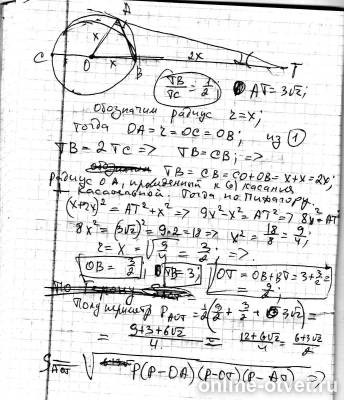 A
x
C
O
x
B
2x
T
TB/TC = 1/2
AT = 3√2;
обозначим радиус r = x;
Тогда OA = r = OC = OB; из ①
TB = 2TC => TB = CB; =>
TB = CB = CO + OB = x + x = 2x;
радиус OA, проведенный к () касания
касательной. Тогда по Пифагору.
(x+2x)² = AT² + x² => 9x² - x² = AT² => 8x² = AT²
8x² = (3√2)² = 9·2 = 18 => x² = 18/8 = 9/4;
r = x = √9/4 = 3/2; =>.
OB = 3/2
TB = 3;
OT = OB + BT = 3 + 3/2 = 9/2;
По Герону
Полупериметр P AOT = 1/2 (9/2 + 3/2 + 3√2) =
= 9+3+6√2/4 = 12+6√2/4 = 6+3√2/2
S AOT = √P(P-OA)(P-OT)(P-AT) =>
online-otvet.ru